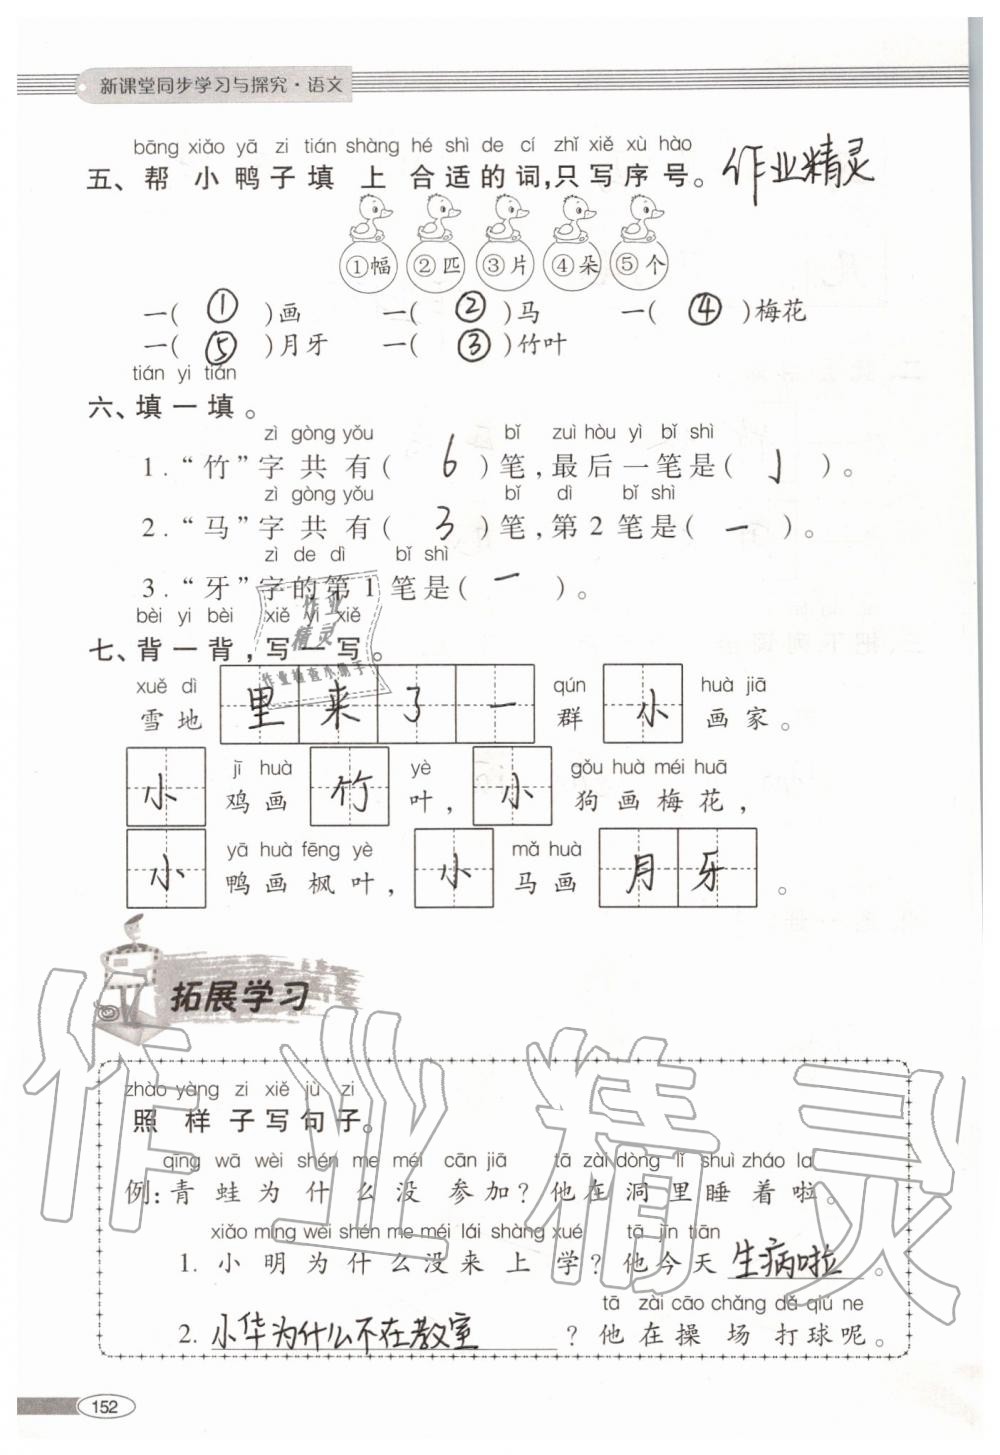 新课堂同步学习与探究·语文
bāng xiǎo yā zi tián shàng hé shì de cí zhǐ xiě xù hào
五、帮小鸭子填上合适的词,只写序号。 作业精灵
①幅 ②匹 ③片 ④朵 ⑤个
一( ① )画 一( ② )马 一( ④ )梅花
一( ⑤ )月牙 一( ③ )竹叶
tián yi tián
六、填一填。
zì gòng yǒu bǐ zuì hòu yì bǐ shì
1.“竹”字共有( 6 )笔,最后一笔是( 亅 )。
zì gòng yǒu bǐ dì bǐ shì
2.“马”字共有( 3 )笔,第2笔是( 一 )。
zì de dì bǐ shì
3.“牙”字的第1笔是( 一 )。
bèi yi bèi xiě yi xiě
七、背一背,写一写。
作业精灵
作业检查小助手
xuě dì qún huà jiā
雪地里来了一群小画家。
jī huà yè gǒu huà méi huā
小鸡画竹叶,小狗画梅花,
yā huà fēng yè mǎ huà
小鸭画枫叶,小马画月牙。
拓展学习
zhào yàng zi xiě jù zi
照样子写句子。
qīng wā wèi shén me méi cān jiā tā zài dòng lǐ shuì zháo la
例:青蛙为什么没参加?他在洞里睡着啦。
xiǎo míng wèi shén me méi lái shàng xué tā jīn tiān
1.小明为什么没来上学?他今天生病啦。
tā zài cāo chǎng dǎ qiú ne
2.小华为什么不在教室?他在操场打球呢。
作业精灵
152